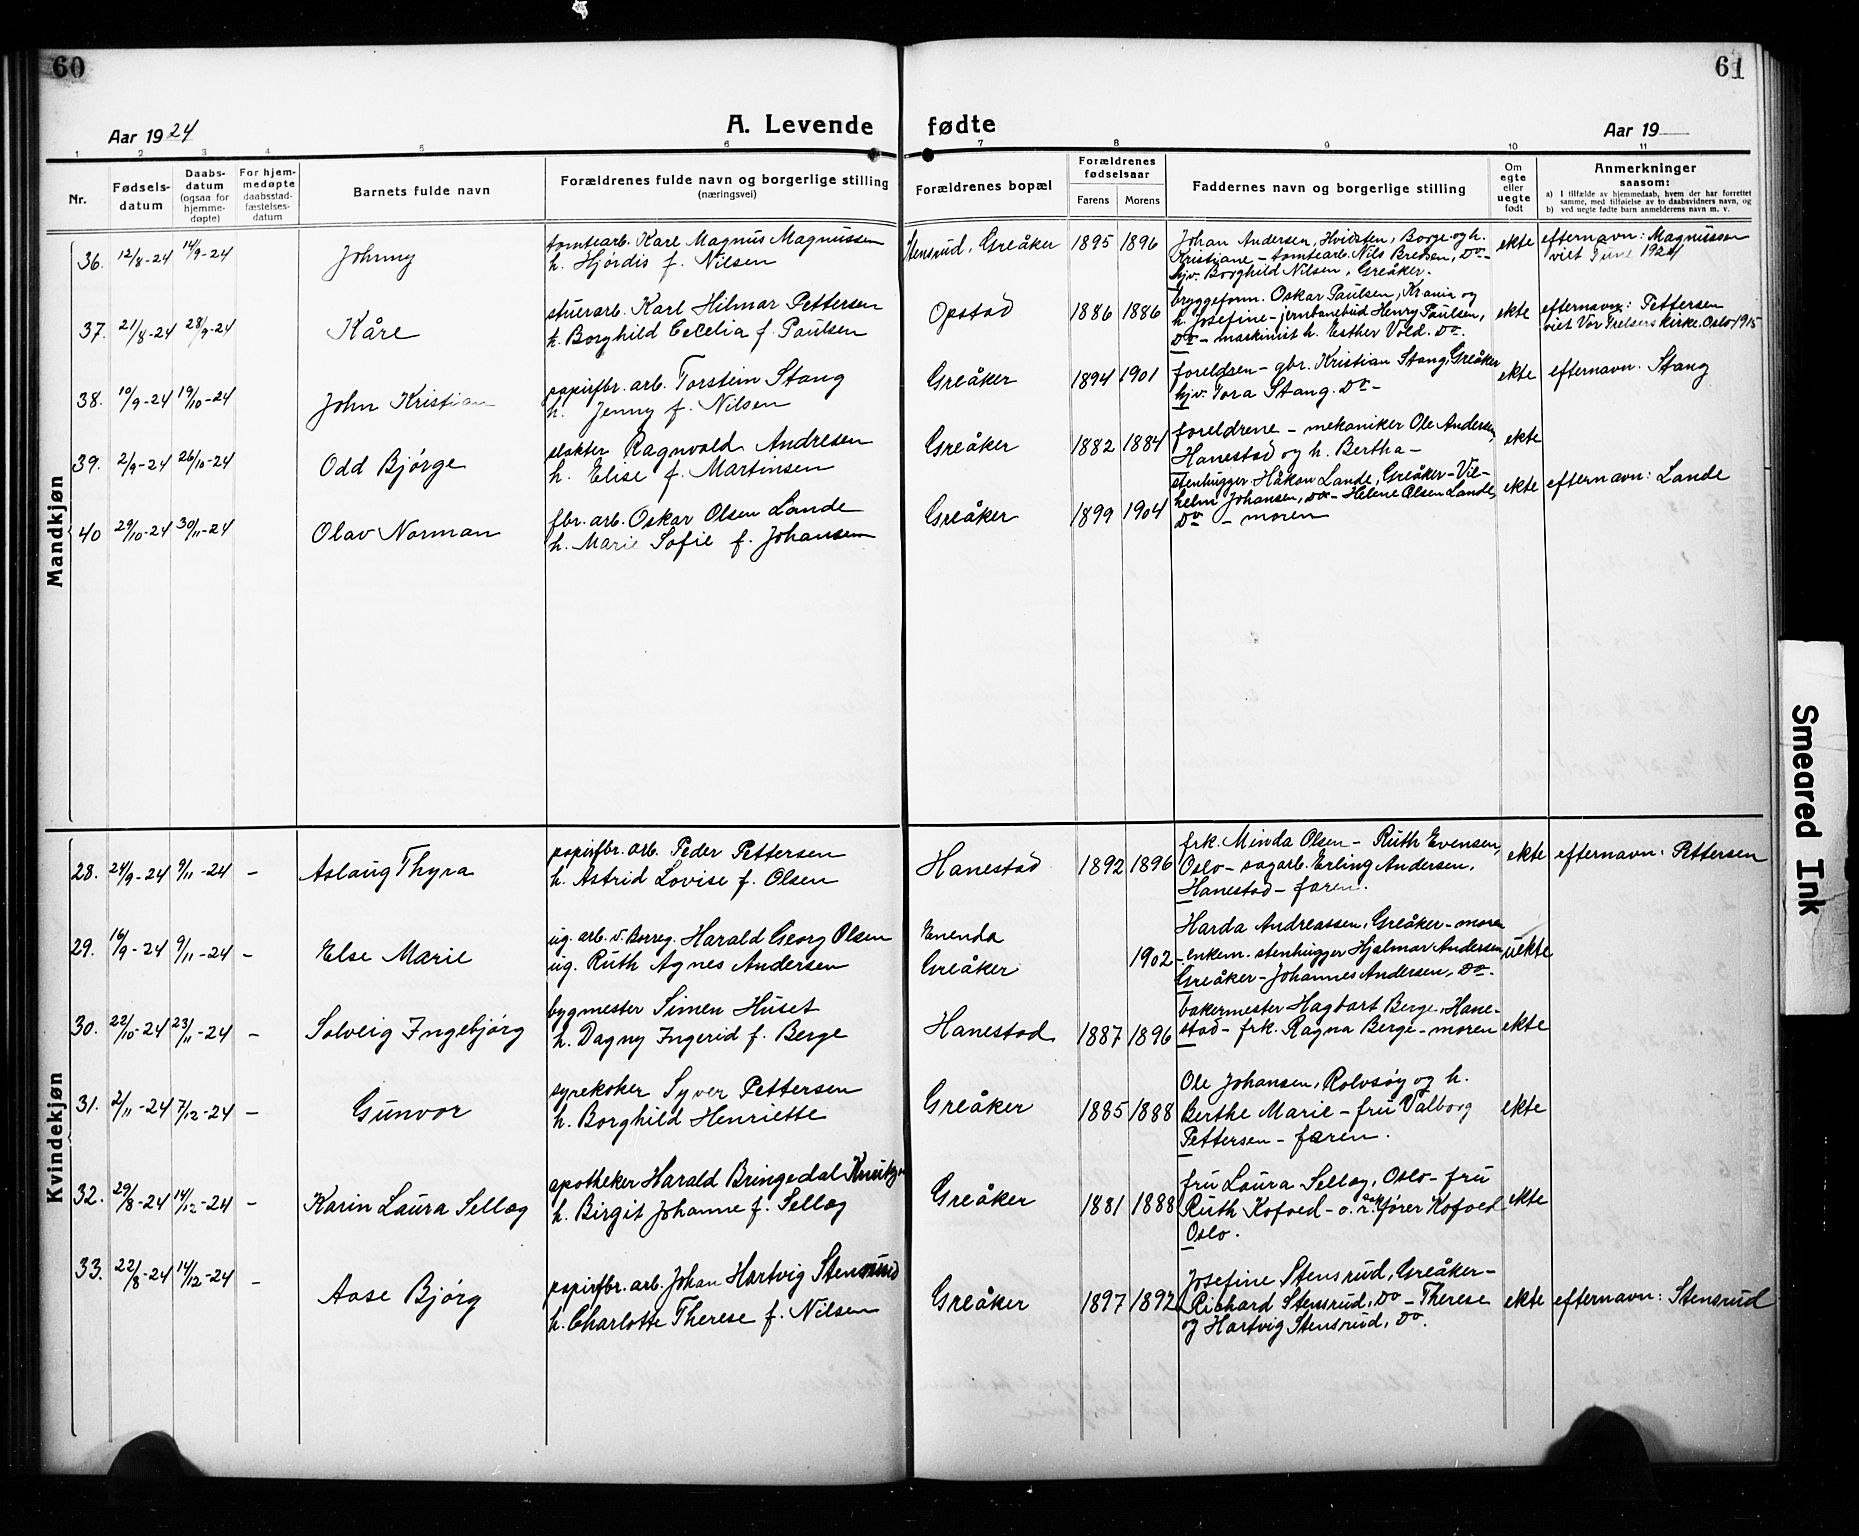 60
61
Aar 1924
A. Levende fødte
Aar 19
1 2 3 4 5 6 7 8 9 10 11
Nr.
Fødsels-
datum
Daabs-
datum
(ogsaa for
hjemme-
døpte)
For hjem-
medøpte
daabsstad-
fæstelses-
datum
Barnets fulde navn
Forældrenes fulde navn og borgerlige stilling
(næringsvei)
Forældrenes bopæl
Forældrenes
fødselsaar
Farens Morens
Faddernes navn og borgerlige stilling
Om
egte
eller
uegte
født
Anmerkninger
saasom:
a) I tilfælde av hjemmedaab, hvem der har forrettet
samme, med tilføielse av to daabsvidners navn, og
b) ved uegte fødte barn anmelderens navn m. v.
Mandkjøn
36. 12/8-24 14/9-24
Johnny
tomtearb. Karl Magnus Magnussen
h. Hjørdis f. Nilsen
Stensrud, Greåker
1895 1896
Johan Andersen, Hvidsten, Borge og h.
Kristiane - tomtearb. Nils Bredsen, Do -
hjv. Borghild Nilsen, Greåker.
ekte
efternavn: Magnussen
viet Tune 1924
37. 21/8-24 28/9-24
Kåre
stuerarb. Karl Hilmar Pettersen
h. Borghild Cecelia f. Paulsen
Opstad
1886 1886
bryggeform. Oskar Paulsen, Krania og
h. Josefine - jernbanebud Henry Paulsen,
Do - maskinist h. Esther Vold. Do.
ekte
efternavn: Pettersen
viet Vor Frelsers Kirke, Oslo 1915
38. 10/9-24 19/10-24
John Kristian
papirfbr. arb. Torstein Stang
h. Jenny f. Nilsen
Greåker
1894 1901
foreldren - gbr. Kristian Stang, Greåker
hjv. Tora Stang. Do -
ekte
efternavn: Stang
39. 2/9-24 26/10-24
Odd Bjørge
slakter Ragnvald Andresen
h. Elise f. Martinsen
Greåker
1882 1884
foreldrene - mekaniker Ole Andersen,
Hanestad og h. Bertha -
ekte
40 29/10-24 30/11-24
Olav Norman
fbr. arb. Oskar Olsen Lande
h. Marie Sofie f. Johansen
Greåker
1899 1904
stenhugger Håkon Lande, Greåker - Vil-
helm Johansen, Do - Helene Olsen Lande,
Do - moren
ekte
efternavn: Lande
Kvindekjøn
28. 24/9-24 9/11-24 -
Aslaug Thyra
papirfbr. arb. Peder Pettersen
h. Astrid Lovise f. Olsen
Hanestad
1892 1896
frk. Minda Olsen - Ruth Evensen,
Oslo - sagarb. Erling Andersen,
Hanestad - faren.
ekte
efternavn: Pettersen
29. 16/9-24 9/11-24 -
Else Marie
ug. arb. v. Borreg. Harald Georg Olsen
ug. Ruth Agnes Andersen
Enenda
Greåker
1902
Harda Andreassen, Greåker - moren
- enkem. stenhugger Hjalmar Andersen
Greåker - Johannes Andersen, Do.
uekte
30. 22/10-24 23/11-24 -
Solveig Ingebjørg
bygmester Simen Huset
h. Dagny Ingerid f. Berge
Hanestad
1887 1896
bakermester Hagbart Berge, Hane-
stad - frk. Ragna Berge - moren
ekte
31. 2/11-24 7/12-24 -
Gunvor
syrekoker Syver Pettersen
h. Borghild Henriette
Greåker
1885 1888
Ole Johansen, Rolvsøy og h.
Berthe Marie - fru Valborg
Pettersen - faren.
ekte
32. 29/8-24 14/12-24 -
Karin Laura Sellæg
apotheker Harald Bringedal
h. Birgit Johanne f. Sellæg
Greåker
1881 1888
fru Laura Sellæg, Oslo - fru
Ruth Kofoed - o.r.sakfører Kofoed
Oslo.
ekte
33. 22/8-24 14/12-24 -
Aase Bjørg
papirfbr. arb. Johan Hartvig Stensrud
h. Charlotte Therese f. Nilsen
Greåker
1897 1892
Josefine Stensrud, Greåker -
Richard Stensrud, Do - Therese
og Hartvig Stensrud, Do.
ekte
efternavn: Stensrud
Smeared Ink